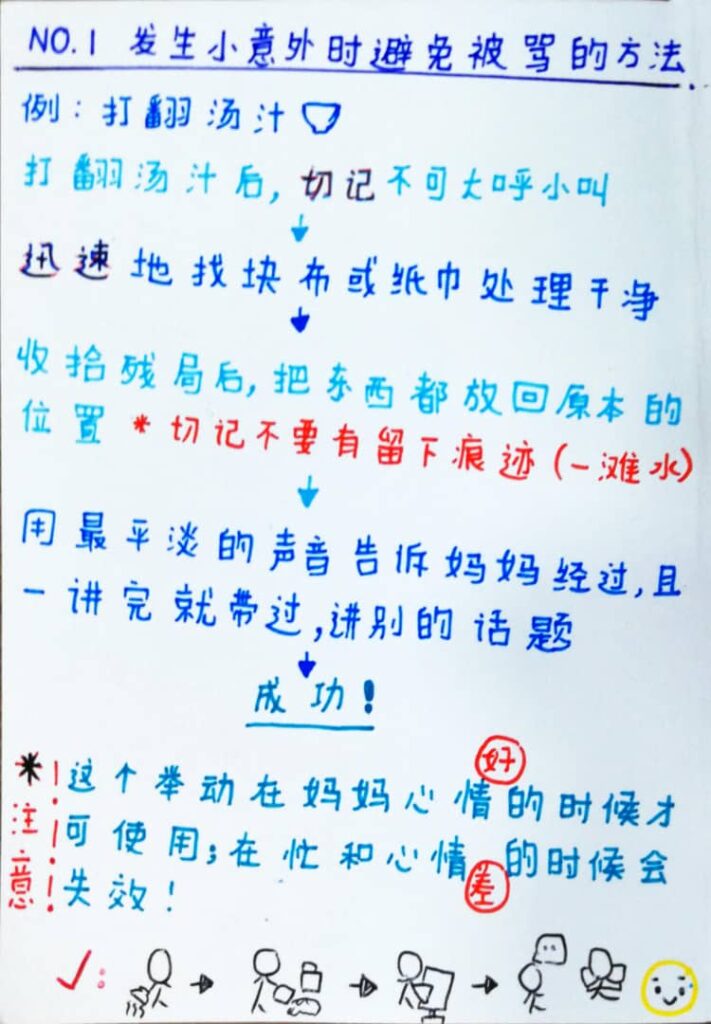 NO.1 发生小意外时避免被骂的方法
例:打翻汤汁
打翻汤汁后,切记不可大呼小叫
迅速地找块布或纸巾处理干净
收拾残局后,把东西都放回原本的
位置 *切记不要有留下痕迹(一滩水)
用最平淡的声音告诉妈妈经过,且
一讲完就带过,讲别的话题
成功!
*注意!!!
这个举动在妈妈心情好的时候才
可使用;在忙和心情差的时候会
失效!